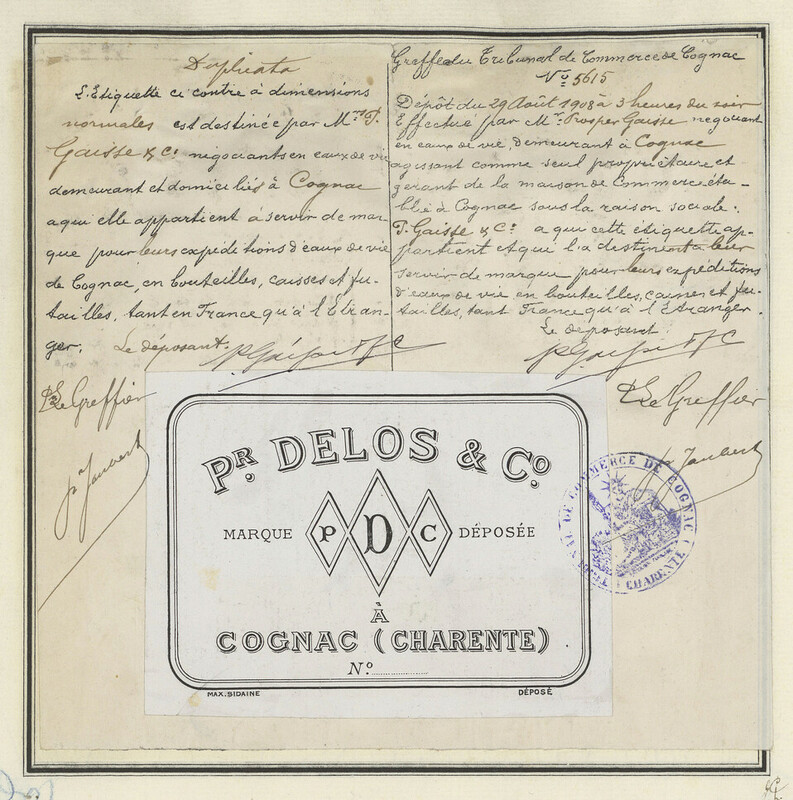 Duplicata
L'Etiquette ci contre à dimensions
normales est destinée par Mrs P.
Gaisse & Co négociants en eaux de vie
demeurant et domiciliés à Cognac
a qui elle appartient à servir de mar-
que pour leurs expéditions d'eaux de vie
de Cognac, en bouteilles, caisses et fu-
tailles, tant en France qu'à l'Etran-
ger. Le déposant.
Le Greffier
p Jaubert
Greffe du Tribunal de Commerce de Cognac
No 5615
Dépôt du 29 Août 1908 à 3 heures du soir
Effectué par Mr Prosper Gaisse négociant
en eaux de vie, demeurant à Cognac
agissant comme seul propriétaire et
gérant de la maison de Commerce éta-
blie à Cognac sous la raison sociale:
P. Gaisse & Co a qui cette étiquette ap-
partient et qui l'a destinent a leur
servir de marque pour leurs expéditions
d'eaux de vie en bouteilles, caisses et fu-
tailles, tant France qu'à l'Etranger.
Le déposant
Le Greffier
p Jaubert
PR. DELOS & Co
MARQUE P D C DÉPOSÉE
À
COGNAC (CHARENTE)
No
MAX. SIDAINE DÉPOSÉ
DE COMMERCE DE COGNAC
CHARENTE